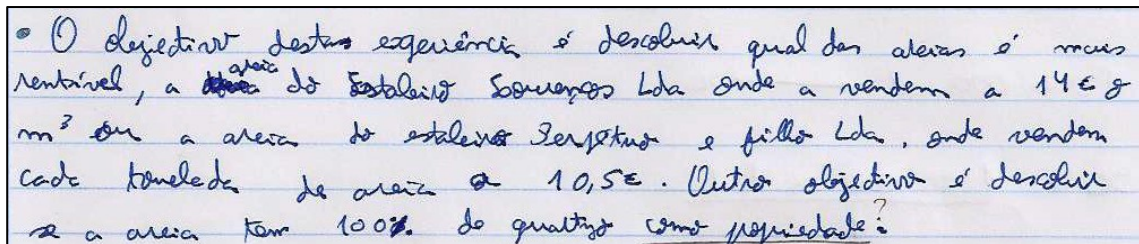 • O objectivo desta experiência é descobrir qual das areias é mais
rentável, a areia do Estaleiro Lourenços Lda onde a vendem a 14€ o
m³ ou a areia do estaleiro Perpétuo e filho Lda, onde vendem
cada tonelada de areia a 10,5€. Outro objectivo é descobrir
se a areia tem 100% de quartzo como popiedade?